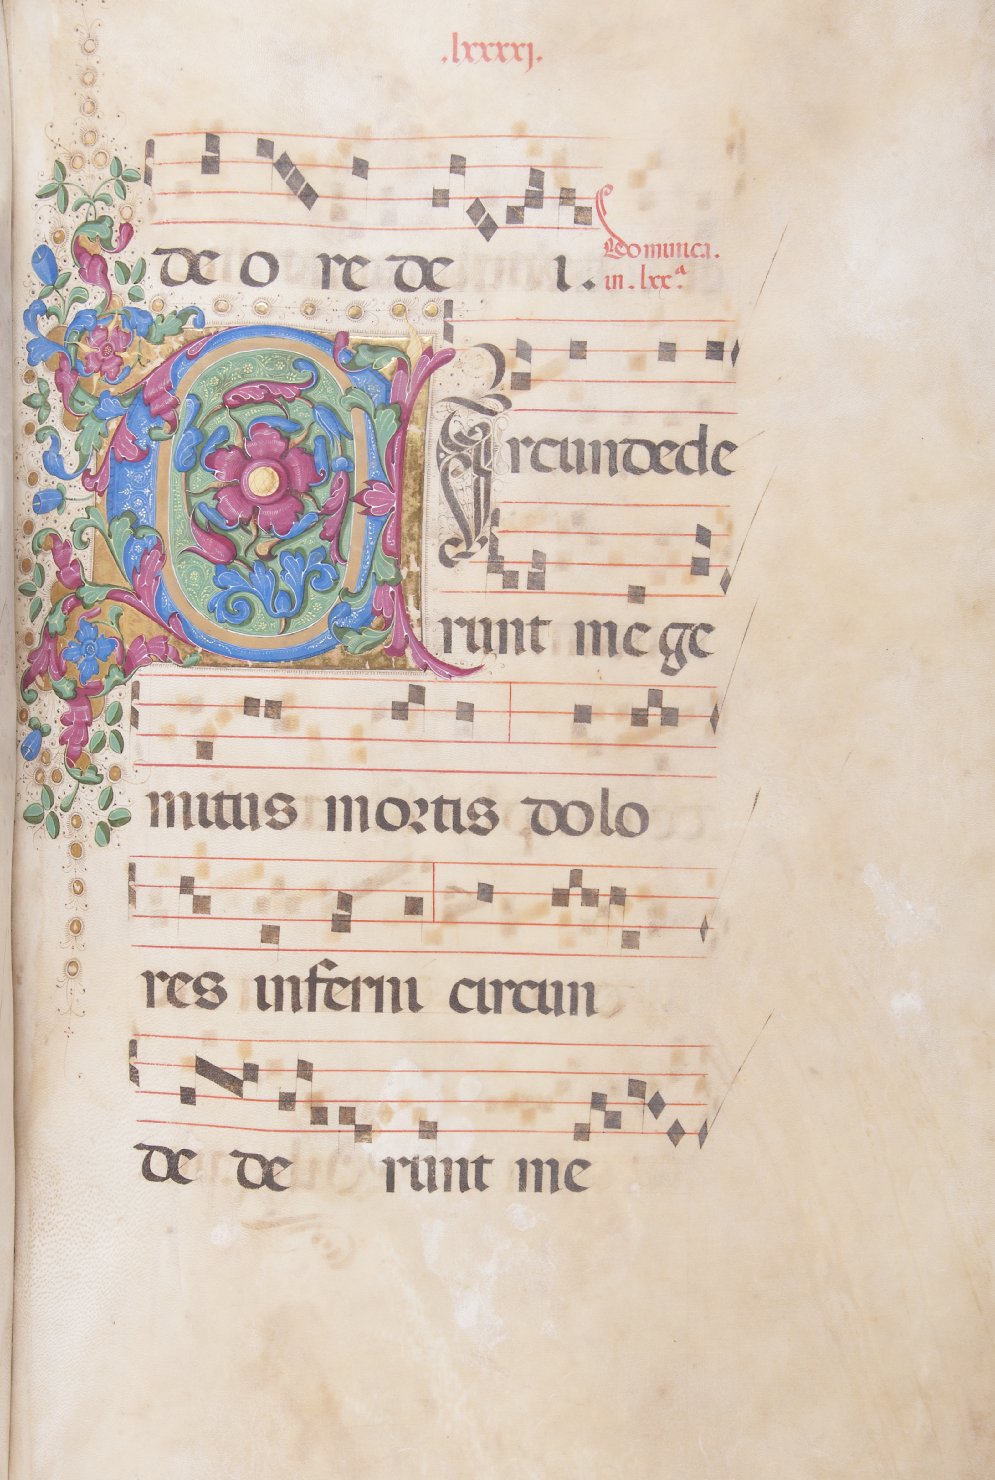 .lxxxxj.
de o re de i.
Dominica.
in . lxx.ª
CIrcundede
runt me ge
mitus mortis dolo
res inferni circun
de de runt me